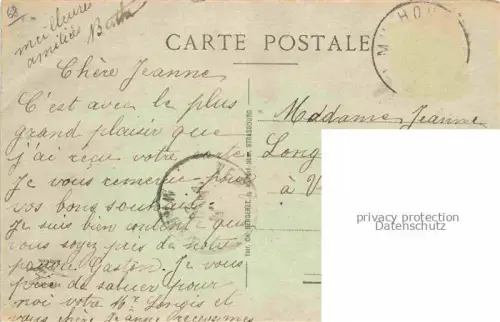 meilleures
amitiés
CARTE POSTALE
M HOU
Chère Jeanne
C'est avec le plus
grand plaisir que
j'ai reçu votre carte
Je vous remercie pour
vos bons souhaits.
Je suis bien content que
vous soyez près de notre
Gaston. Je vous
prie de saluer pour
moi votre Mr Longis et
vous chère Jeanne recevez mes
Madame Jeanne
Long
à V
privacy protection
Datenschutz